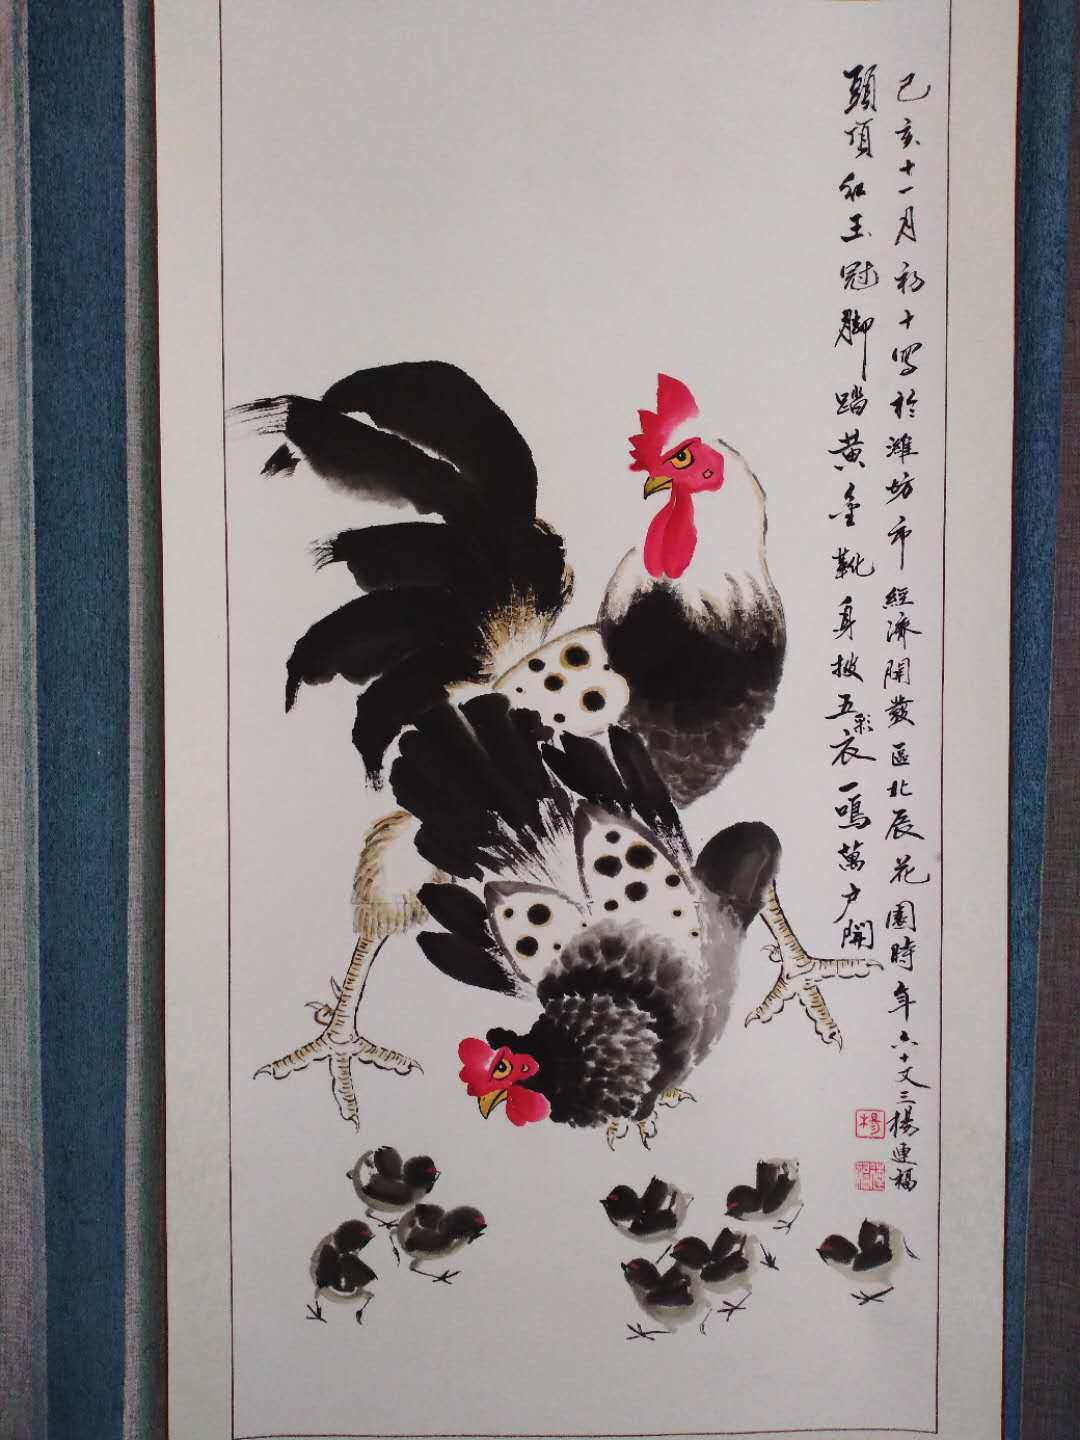 己亥十一月初十写於潍坊市經濟開發區北辰花園時年六十又三楊連福
頭頂红玉冠脚踏黄金靴身披五彩衣一鳴萬户開
楊